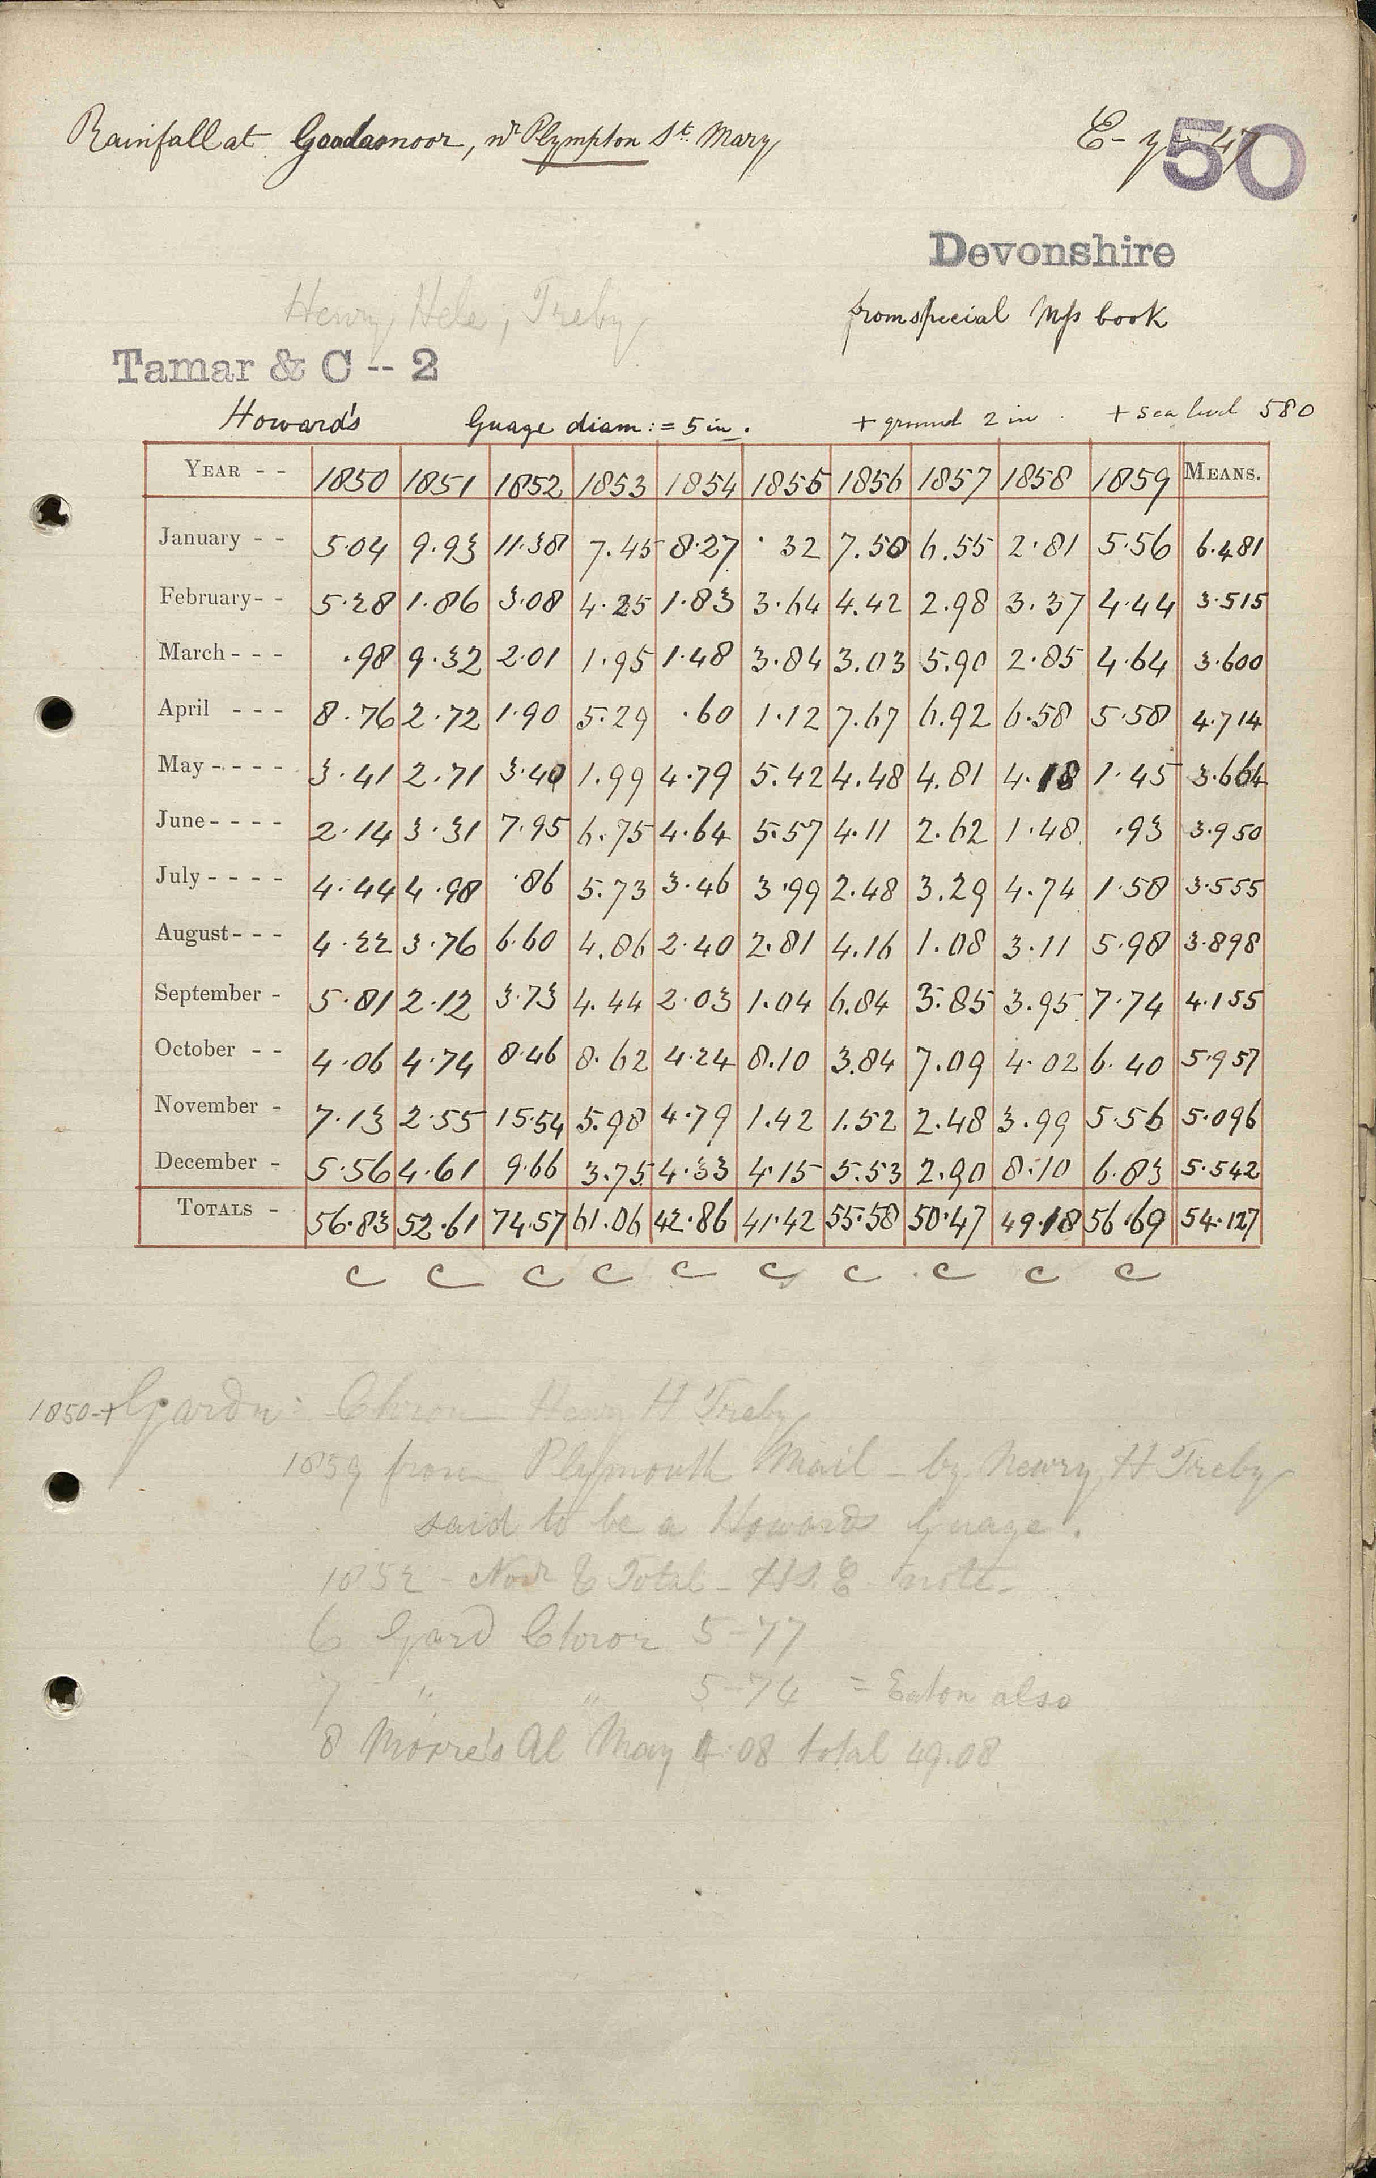 Rainfall at Goodamoor, nr Plympton St. Mary
50
Devonshire
Henry Hele, Treby
from special Mss book
Tamar & C -- 2
Howard's Guage diam: = 5 in. + ground 2 in + sea level 580
YEAR - - 1850 1851 1852 1853 1854 1855 1856 1857 1858 1859 MEANS.
January - - 5.04 9.93 11.38 7.45 8.27 .32 7.50 6.55 2.81 5.56 6.481
February - - 5.28 1.86 3.08 4.25 1.83 3.64 4.42 2.98 3.37 4.44 3.515
March - - - .98 9.32 2.01 1.95 1.48 3.84 3.03 5.90 2.85 4.64 3.600
April - - - 8.76 2.72 1.90 5.29 .60 1.12 7.67 6.92 6.58 5.58 4.714
May - - - - 3.41 2.71 3.40 1.99 4.79 5.42 4.48 4.81 4.18 1.45 3.664
June - - - - 2.14 3.31 7.95 6.75 4.64 5.57 4.11 2.62 1.48 .93 3.950
July - - - - 4.44 4.98 .86 5.73 3.46 3.99 2.48 3.29 4.74 1.58 3.555
August - - - 4.22 3.76 6.60 4.86 2.40 2.81 4.16 1.08 3.11 5.98 3.898
September - 5.81 2.12 3.73 4.44 2.03 1.04 6.84 3.85 3.95 7.74 4.155
October - - 4.06 4.74 8.46 8.62 4.24 8.10 3.84 7.09 4.02 6.40 5.957
November - 7.13 2.55 15.54 5.98 4.79 1.42 1.52 2.48 3.99 5.56 5.096
December - 5.56 4.61 9.66 3.75 4.33 4.15 5.53 2.90 8.10 6.83 5.542
TOTALS - 56.83 52.61 74.57 61.06 42.86 41.42 55.58 50.47 49.18 56.69 54.127
c c c c c c c c c c
1850-+ Gardn: Chron Henry H Treby
1859 from Plymouth Mail - by Henry H Treby
said to be a Howards Guage.
1852 - Novr & Total - note -
6 Gard Chron 5-77
7 " " 5-74 = Eaton also
8 Morre's Al May 4.08 total 49.08